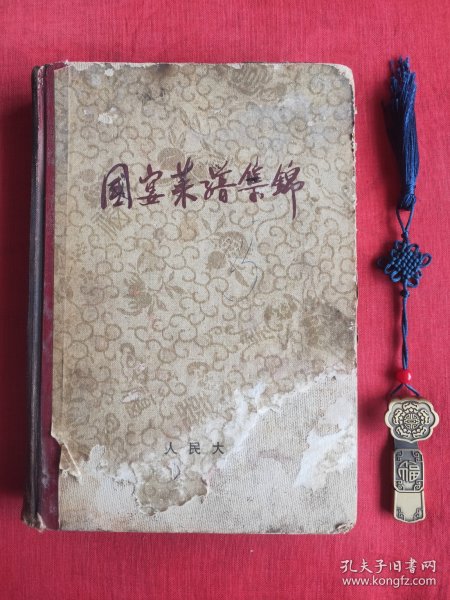 國宴菜谱集锦
人民大
福
孔夫子旧书网
www.kongfz.com